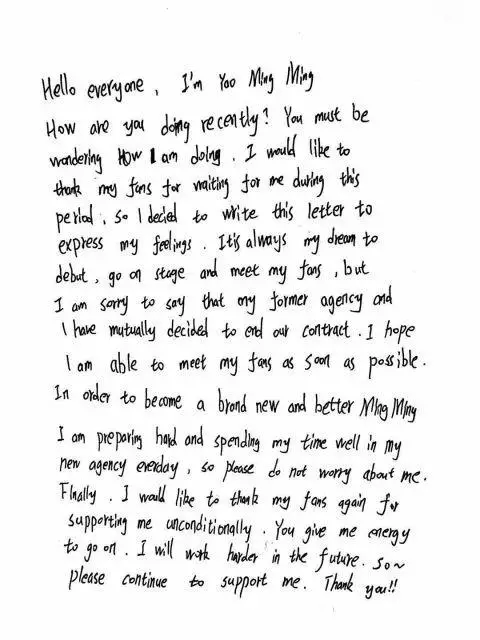 Hello everyone, I'm Yao Ming Ming
How are you doing recently? You must be
wondering How I am doing. I would like to
thank my fans for waiting for me during this
period, so I decied to write this letter to
express my feelings. It's always my dream to
debut, go on stage and meet my fans, but
I am sorry to say that my former agency and
I have mutually decided to end our contract. I hope
I am able to meet my fans as soon as possible.
In order to become a brand new and better Ming Ming
I am preparing hard and spending my time well in my
new agency everday, so please do not worry about me.
Finally. I would like to thank my fans again for
supporting me unconditionally. You give me energy
to go on. I will work harder in the future. so~
please continue to support me. Thank you!!